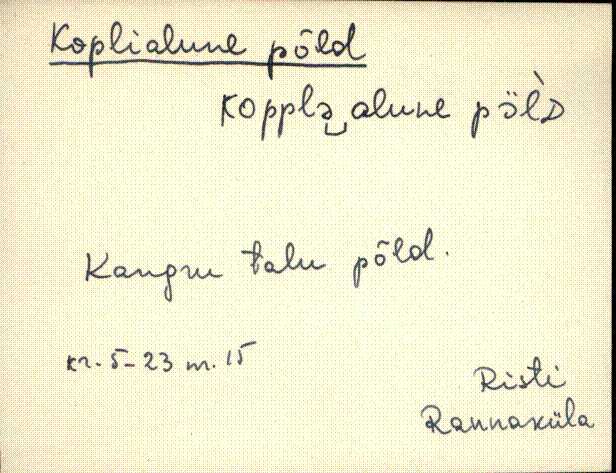 Koplialune põld
Kopplə alune pöl̀ᴅ
Kangru talu põld.
kr. 5-23 nr. 15
Risti
Rannaküla